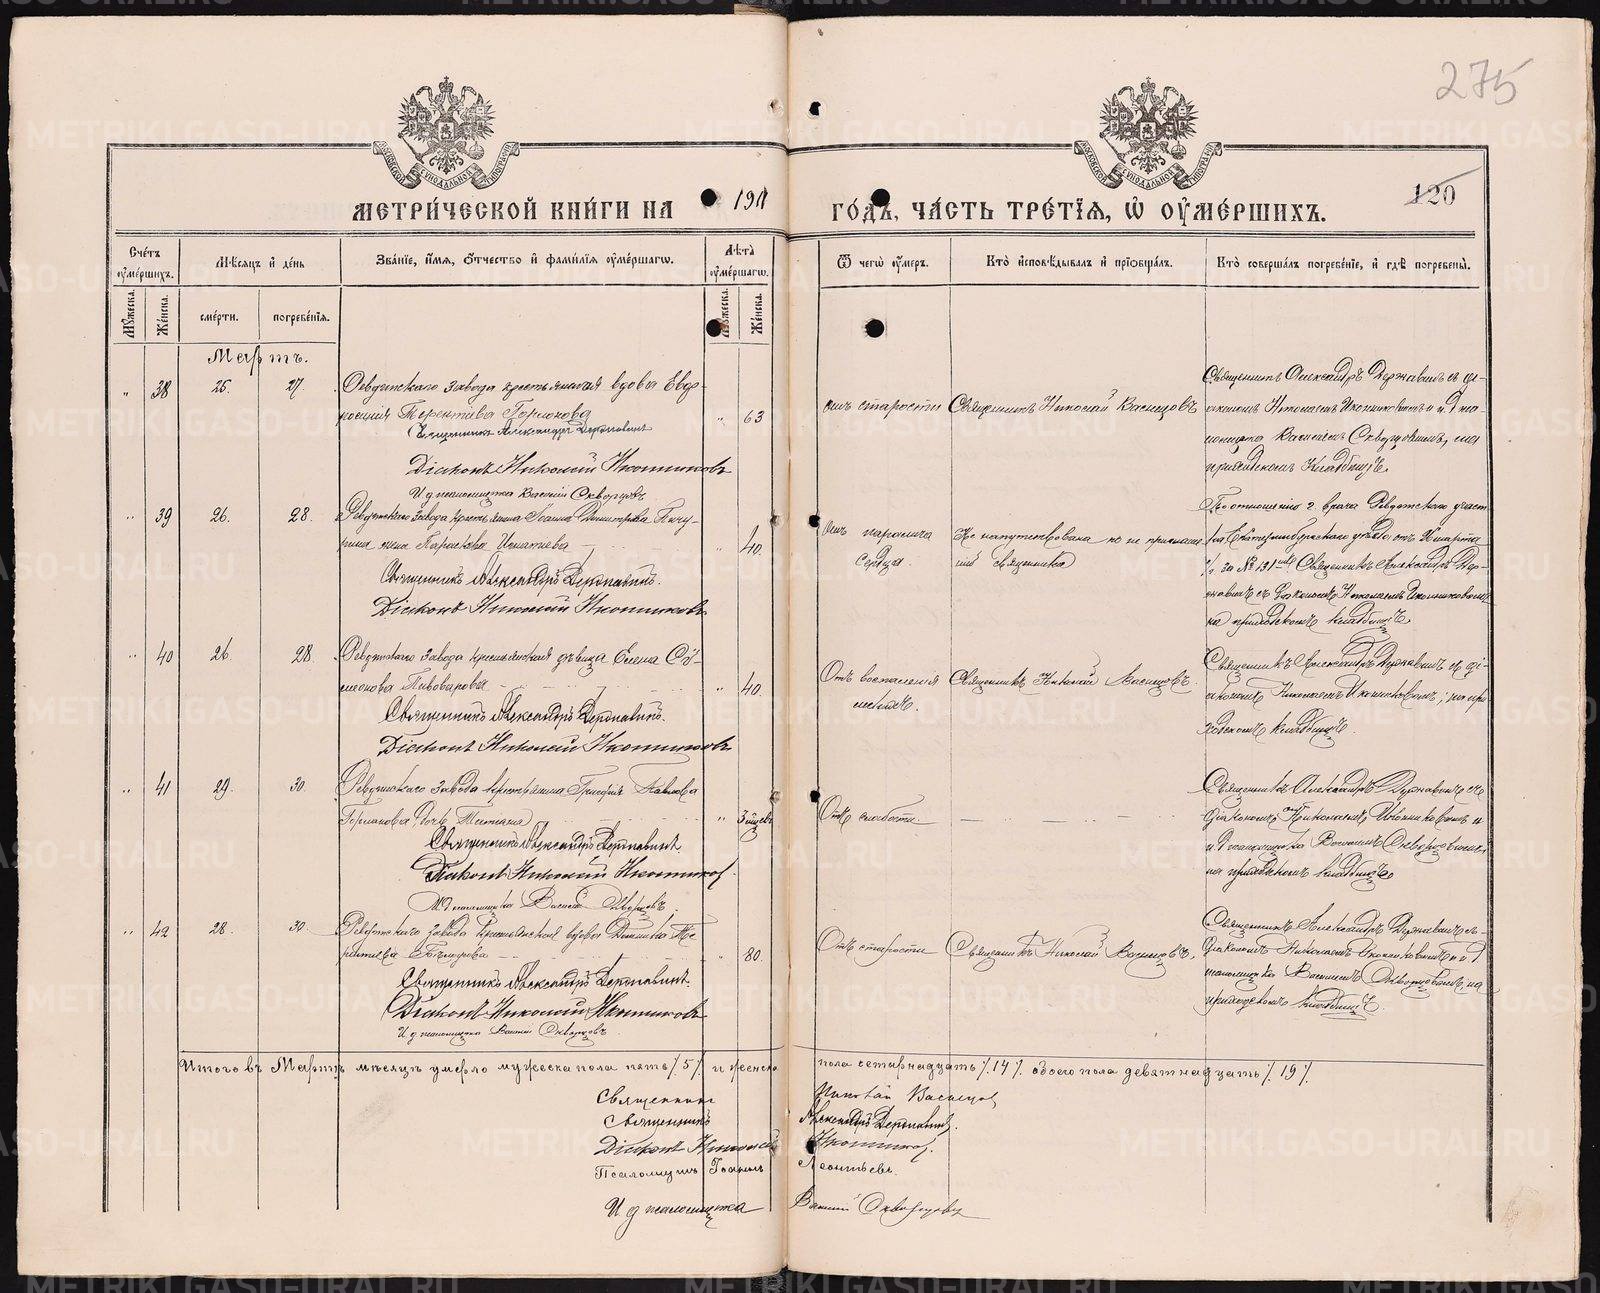 275
120
МЕТРИЧЕСКОЙ КНИГИ НА 1911 ГОДЪ, ЧАСТЬ ТРЕТІЯ, Ѡ ОУМЕРШИХЪ.
Счетъ оумершихъ.
Мужеска.
Женска.
Мѣсяцъ и день
смерти.
погребенія.
Званіе, имя, отчество и фамилія оумершагѡ.
Лѣта оумершагѡ.
Мужеска.
Женска.
Ѿ чегѡ оумеръ.
Кто исповѣдывалъ и пріобщалъ.
Кто совершалъ погребеніе, и гдѣ погребены.
Мартъ.
38 25. 27.
Ревдинскаго завода крестьянская вдова Евдо-
кія Терентьева Горюнова 63
Священникъ Александръ Державинъ
Діаконъ Николай Иконниковъ
И д псаломщика Василій Скворцовъ
отъ старости
Священникъ Николай Васнецовъ
Священникъ Александръ Державинъ съ ді-
акономъ Николаемъ Иконниковымъ и и. д пса-
ломщика Василіемъ Скворцовымъ, на
приходскомъ кладбищѣ.
39 26. 28.
Ревдинскаго завода крестьянина Іоанна Димитріева Пичу-
гина жена Параскева Игнатіева 40.
Священникъ Александръ Державинъ.
Діаконъ Николай Иконниковъ
отъ паралича
сердца.
Не напутствована по не приглаше-
нію священника
По отношенію г. врача Ревдинскаго участ-
ка Екатеринбургскаго уѣзда отъ Марта
за № 131 Священникъ Александръ Дер-
жавинъ съ діакономъ Николаемъ Иконниковымъ
на приходскомъ кладбищѣ.
40 26. 28.
Ревдинскаго завода крестьянская дѣвица Елена Си-
меонова Пивоварова 40.
Священникъ Александръ Державинъ.
Діаконъ Николай Иконниковъ
Отъ воспаленія
легкихъ.
Священникъ Николай Васнецовъ.
Священникъ Александръ Державинъ съ ді-
акономъ Николаемъ Иконниковымъ, на при-
ходскомъ кладбищѣ.
41 29. 30.
Ревдинскаго завода крестьянина Григорія Павлова
дочь Татіана
Священникъ Александръ Державинъ
Діаконъ Николай Иконниковъ.
И д псаломщика Василій Скворцовъ.
Отъ слабости.
Священникъ Александръ Державинъ съ
діакономъ Николаемъ Иконниковымъ и
и. д псаломщика Василіемъ Скворцовымъ
на приходскомъ кладбищѣ
42 28. 30.
Ревдинскаго завода крестьянская вдова
80.
Священникъ Александръ Державинъ.
Діаконъ Николай Иконниковъ
И. д псаломщика Василій Скворцовъ.
Отъ старости
Священникъ Николай Васнецовъ.
Священникъ Александръ Державинъ съ
діакономъ Николаемъ Иконниковымъ и и д
псаломщика Василіемъ Скворцовымъ на
приходскомъ кладбищѣ.
Итого въ Мартѣ мѣсяцѣ умерло мужеска пола пять /5/ и женска пола четырнадцать /14/. обоего пола девятнадцать /19/.
Священникъ Николай Васнецовъ
Священникъ Александръ Державинъ.
Діаконъ Николай Иконниковъ.
Псаломщикъ Іоаннъ Леонтьевъ.
И д псаломщика Василій Скворцовъ
METRIKI.GASO-URAL.RU